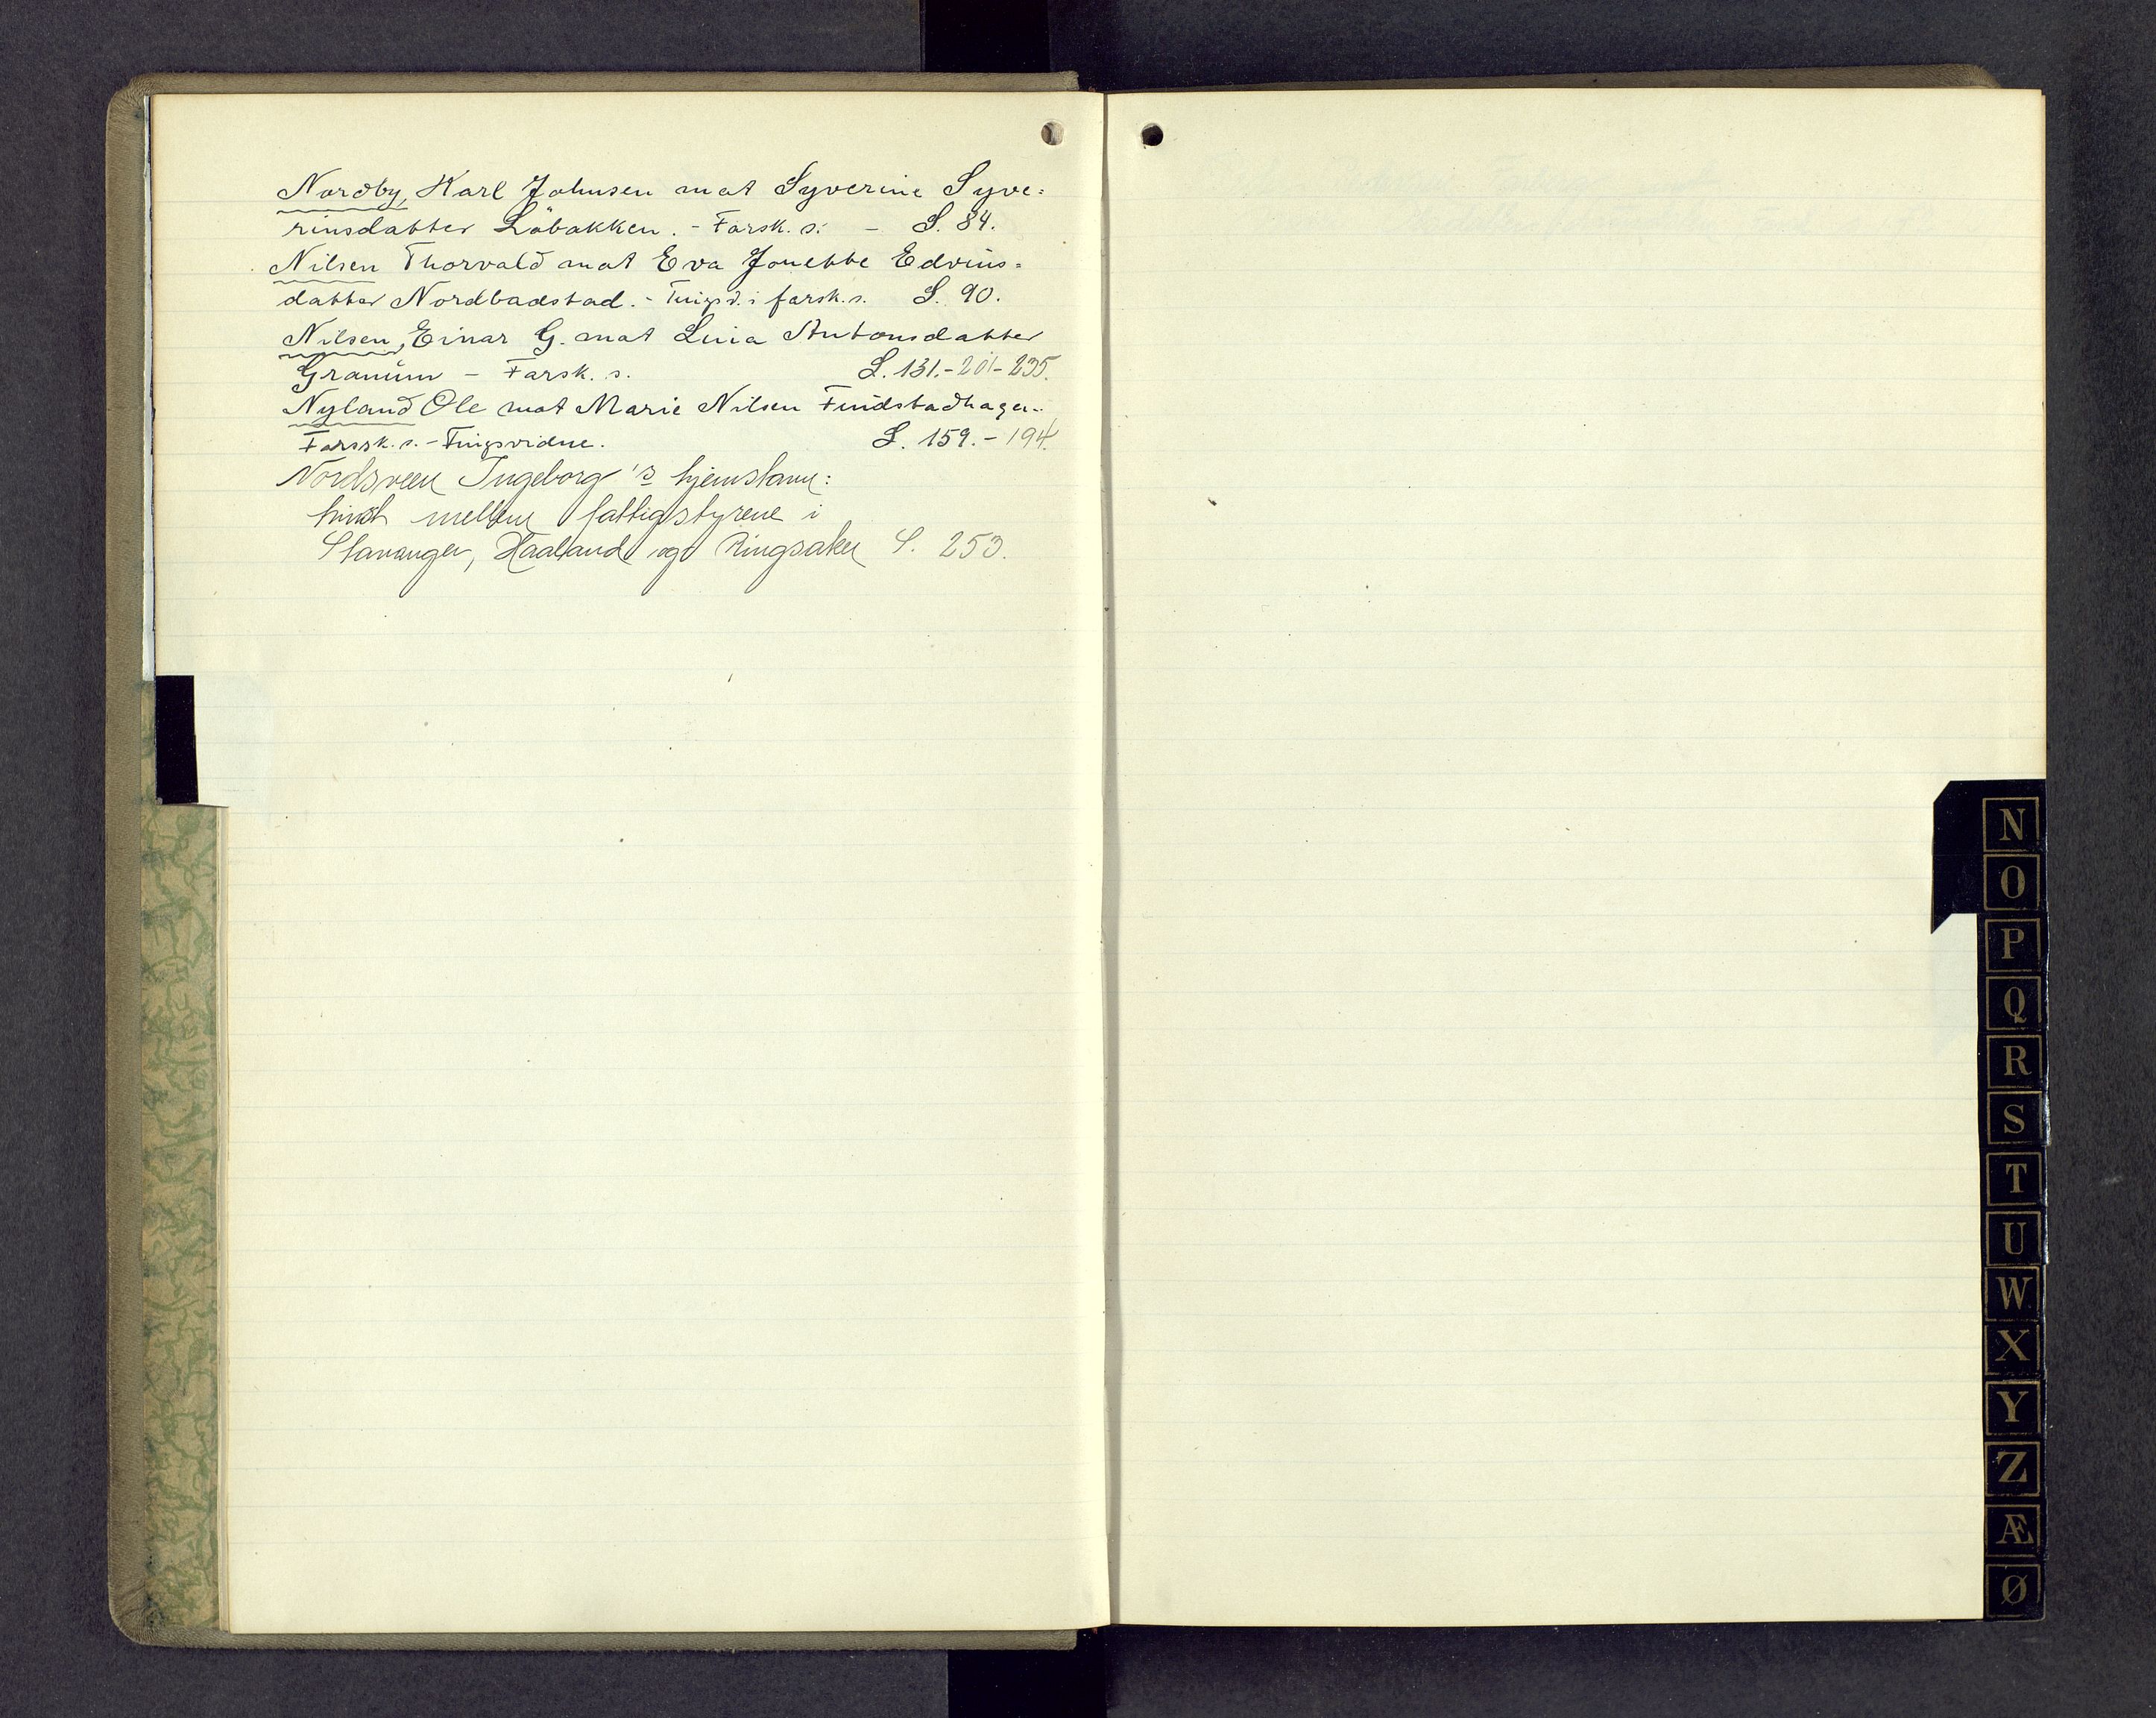 Nordby, Karl Johnsen mot Syverine Syve=
rinsdatter Löbakken. - Farsk. s. - S. 84.
Nilsen Thorvald mot Eva Jonette Edvins=
datter Nordbadstad. - Tingsv. i farsk. s. S. 90.
Nilsen, Einar G. mot Lina Antonsdatter
Granum - Farsk. s. S. 131. - 201 - 235.
Nyland Ole mot Marie Nilsen Findstadhagen.
Farssk. s. - Tingsvidne. S. 159. - 194.
Nordsveen Ingeborg 's hjemstavn:
tvist mellem fattigstyrene i
Stavanger, Haaland og Ringsaker S. 253.
N
O
P
Q
R
S
T
U
W
X
Y
Z
Æ
Ø